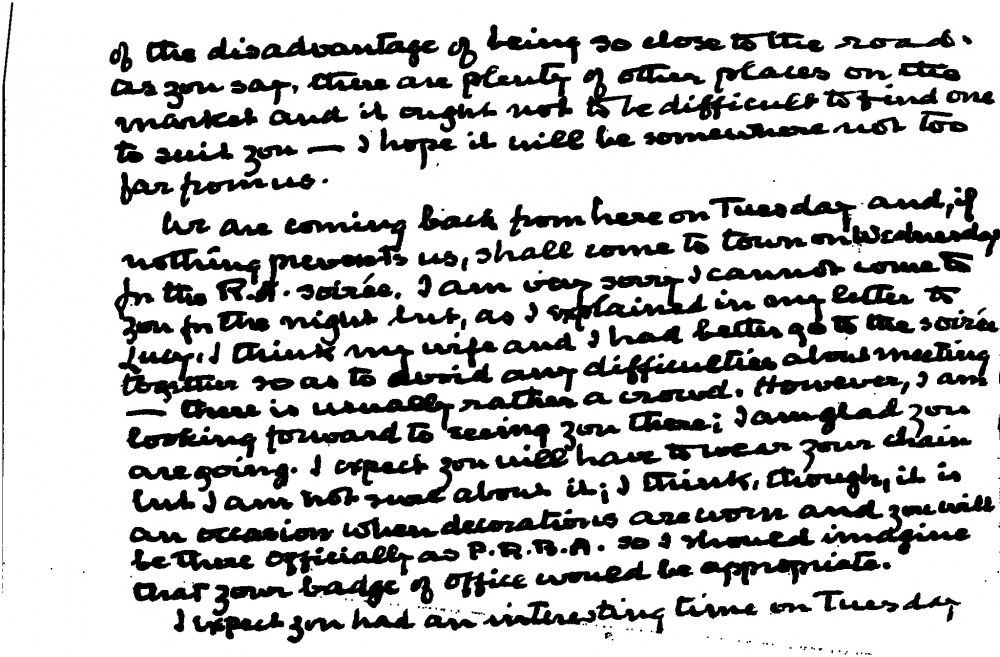 of the disadvantage of being so close to the road.
As you say, there are plenty of other places on the
market and it ought not to be difficult to find one
to suit you — I hope it will be somewhere not too
far from us.
We are coming back from here on Tuesday and, if
nothing prevents us, shall come to town on Wednesday
for the R.A. soirée. I am very sorry I cannot come to
you for the night but, as I explained in my letter to
Lucy, I think my wife and I had better go to the soirée
together so as to avoid any difficulties about meeting
— there is usually rather a crowd. However, I am
looking forward to seeing you there; I am glad you
are going. I expect you will have to wear your chain
but I am not sure about it; I think, though, it is
an occasion when decorations are worn and you will
be there officially as P.R.B.A. so I should imagine
that your badge of office would be appropriate.
I expect you had an interesting time on Tuesday